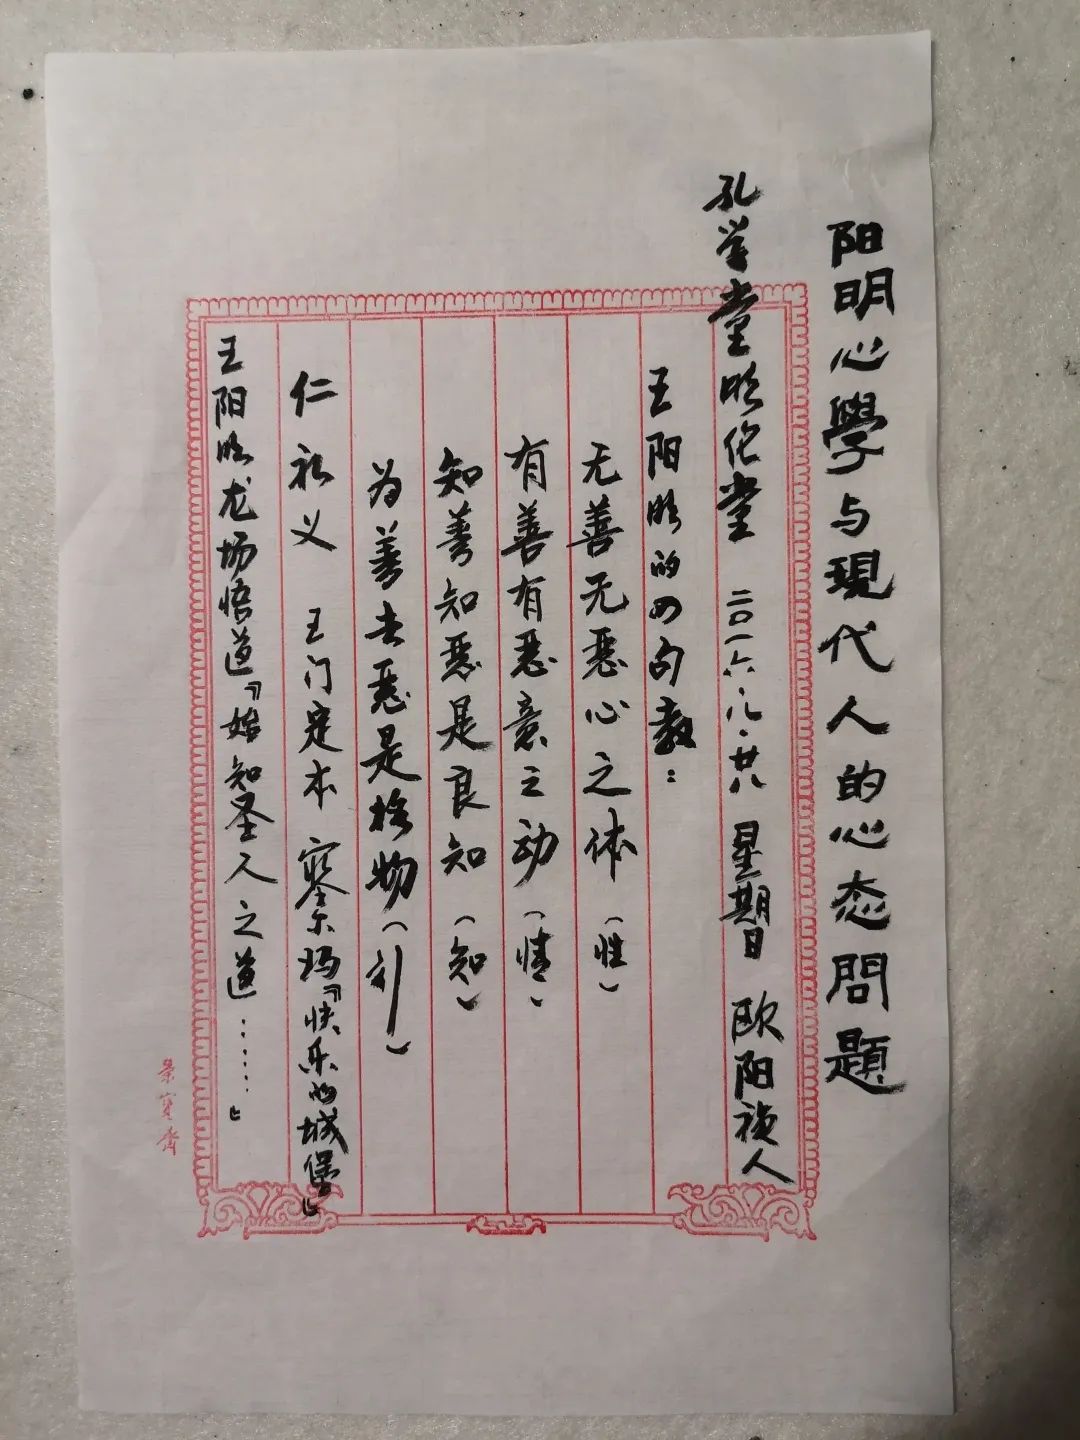 阳明心學与現代人的心态問題
孔学堂明伦堂 二〇一六.八.廿八 星期日 欧阳祯人
王阳明的四句教:
无善无恶心之体(性)
有善有恶意之动(情)
知善知恶是良知(知)
为善去恶是格物(行)
仁礼义 王门定本 塞尔玛『快乐的城堡』
王阳明龙场悟道『始知圣人之道……』